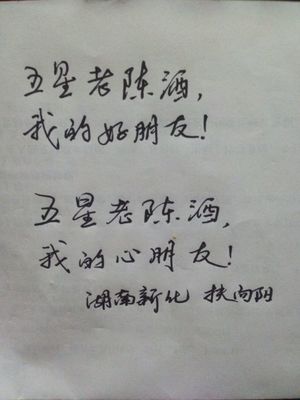 五星老陈酒，
我的好朋友！
五星老陈酒，
我的心朋友！
湖南新化 扶向阳